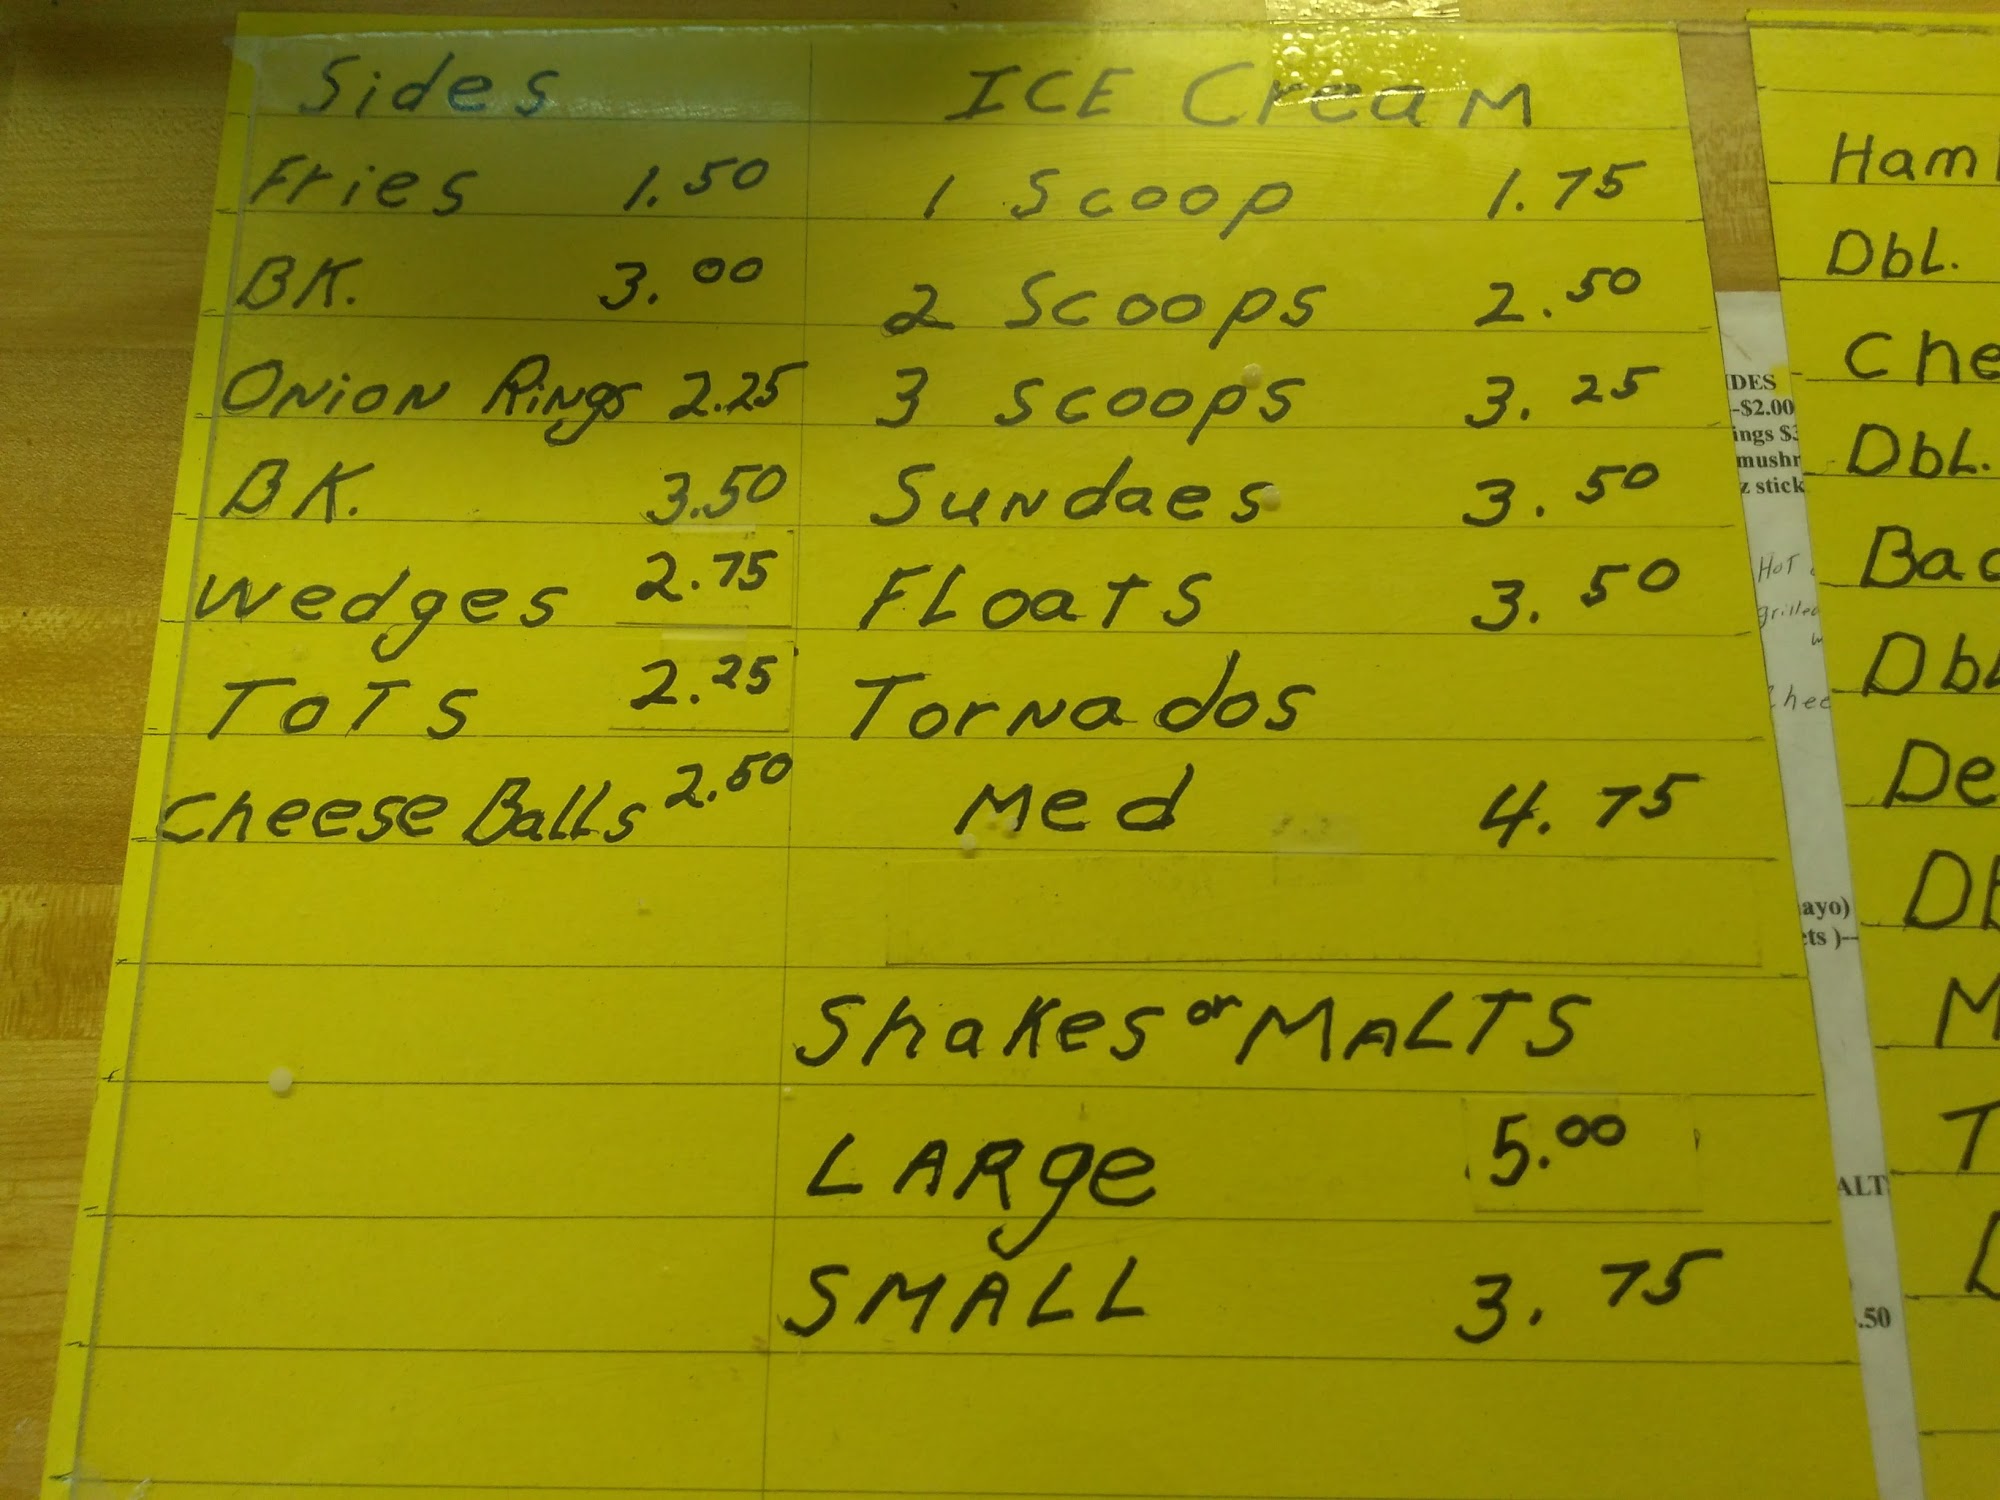 Sides
Fries 1.50
BK. 3.00
Onion Rings 2.25
BK. 3.50
Wedges 2.75
ToTs 2.25
Cheese Balls 2.50
ICE Cream
1 Scoop 1.75
2 Scoops 2.50
3 Scoops 3.25
Sundaes 3.50
FLoaTs 3.50
Tornados
Med 4.75
Shakes or MALTS
LARge 5.00
SMALL 3.75
DES
-$2.00
ings $
mushr
z stick
HoT
grilled
Chee
ayo)
ts )--
ALT
.50
Ham
DbL.
Che
DbL.
Bac
DbL
De
Db
M
T